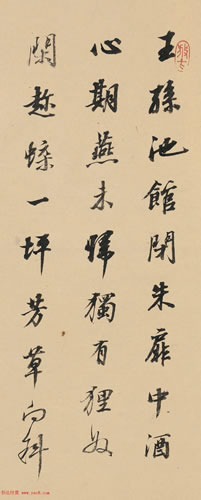 王孫池館閉朱扉中酒
心期燕未歸獨有狸奴
閑趂蝶一坪芳草向斜
www.yac8.com